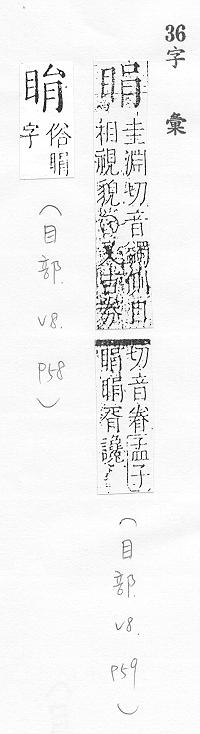 36字彙
睊
圭淵切音側目
相視貌○又古券
切音眷孟子
睊睊胥讒
(目部. v8. p59)
俗睊
字
(目部. v8. p58)